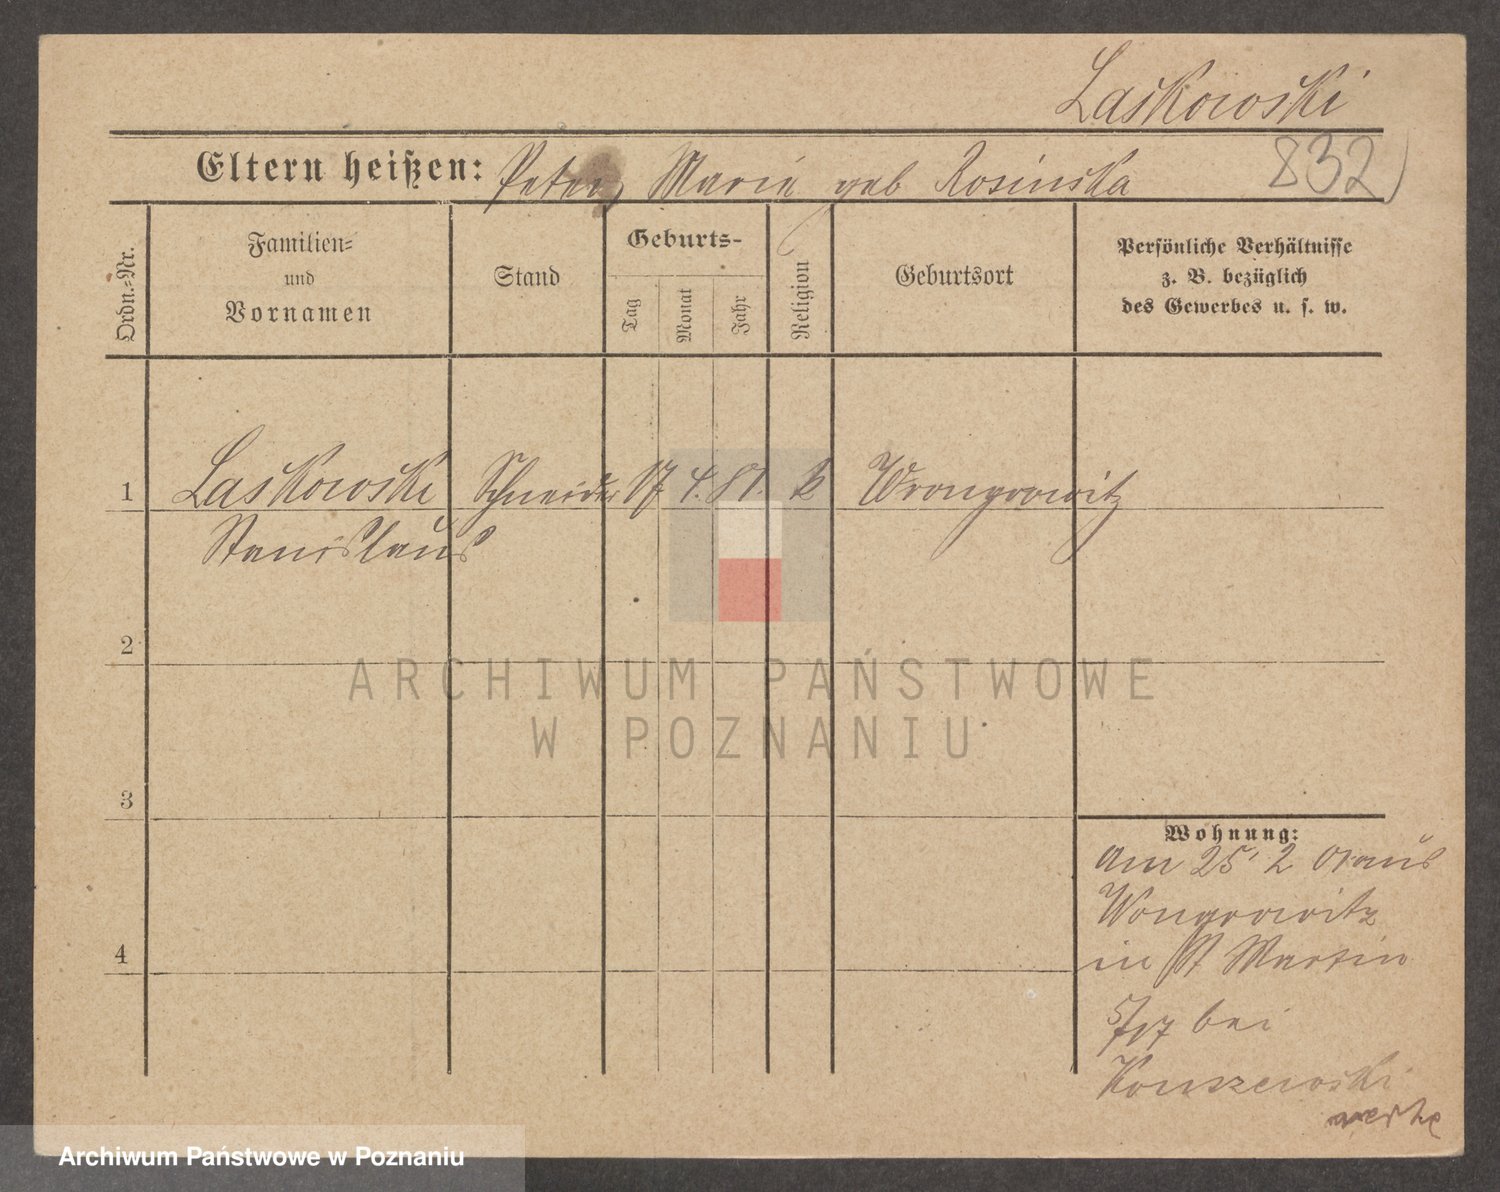 Laskowski
Eltern heißen: Peter, Marie geb Rosinska
832
Ordn.-Nr.
Familien-
und
Vornamen
Stand
Geburts-
Tag
Monat
Jahr
Religion
Geburtsort
Persönliche Verhältnisse
z. B. bezüglich
des Gewerbes u. s. w.
1 Laskowski Schneider 17 4. 81. k Wrongrowitz
Stanislaus
2
3
4
Wohnung:
am 25 2 01 aus
Wongrowitz
in St Martin
5/17 bei
Konszewski
ARCHIWUM PAŃSTWOWE
W POZNANIU
Archiwum Państwowe w Poznaniu